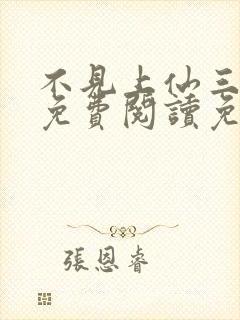 不見上仙三
免費閱讀免
張恩睿